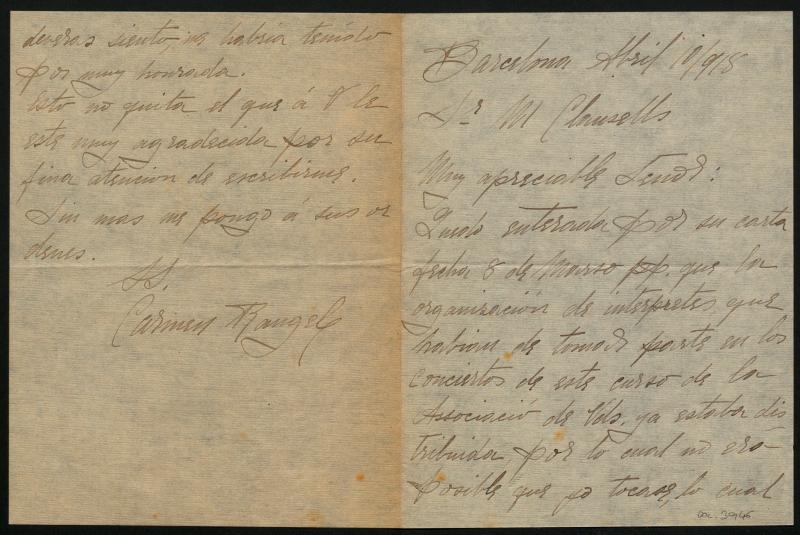 Barcelona Abril 10/918
Sr M Clausells
Muy apreciable Senor:
Quedo enterada por su carta
fecha 8 de Marso pp. que la
organización de interpretes que
habian de tomar parte en los
conciertos de este curso de la
Associació de Vds. ya estaba dis
tribuida, por lo cual no era
posible que yo tocase, lo cual
deveras siento, me habria tenido
por muy honrada.
Esto no quita el que á V le
este muy agradecida por su
fina atencion de escribirme.
Sin mas me pongo á sus or
denes.
SS.
Carmen Rangel
doc. 3946